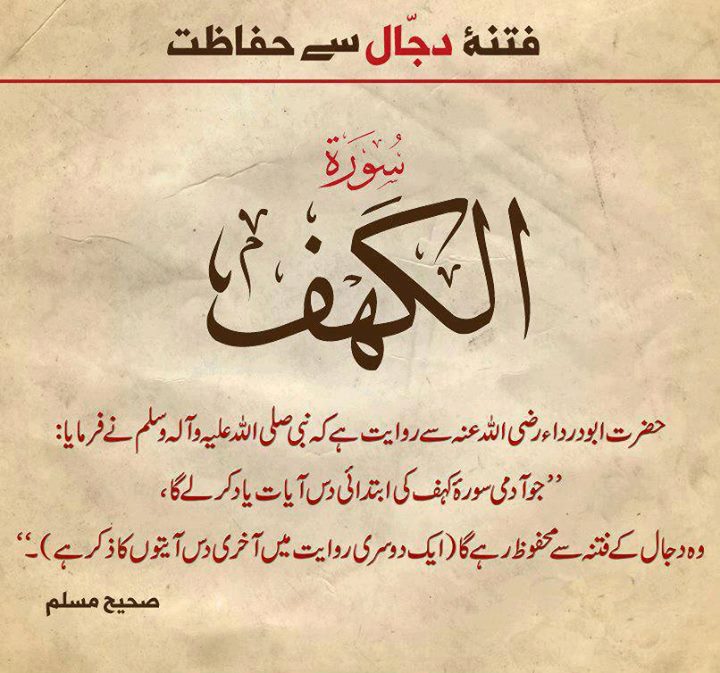 فتنۂ دجّال سے حفاظت
سُورَة
الكَهف
حضرت ابودرداء رضی اللہ عنہ سے روایت ہے کہ نبی صلی اللہ علیہ وآلہ وسلم نے فرمایا:
’’جو آدمی سورۂ کہف کی ابتدائی دس آیات یاد کر لے گا،
وہ دجال کے فتنہ سے محفوظ رہے گا (ایک دوسری روایت میں آخری دس آیتوں کا ذکر ہے)۔‘‘
صحیح مسلم